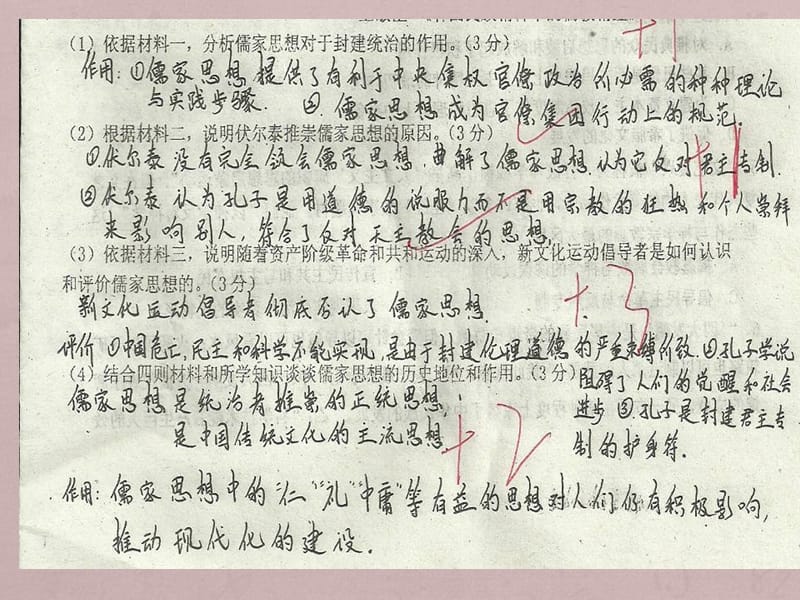 +1
(1)依据材料一，分析儒家思想对于封建统治的作用。(3分)
作用:①儒家思想提供了有利于中央集权官僚政治所必需的种种理论
与实践步骤. ②.儒家思想成为官僚集团行动上的规范.
(2)根据材料二，说明伏尔泰推崇儒家思想的原因。(3分)
+1
①.伏尔泰没有完全领会儒家思想,曲解了儒家思想.认为它反对君主专制.
②.伏尔泰认为孔子是用道德的说服力而不是用宗教的狂热和个人崇拜
来影响别人,符合了反对天主教会的思想,
(3)依据材料三，说明随着资产阶级革命和共和运动的深入，新文化运动倡导者是如何认识
和评价儒家思想的。(3分)
新文化运动倡导者彻底否认了儒家思想
+3
评价①中国危亡,民主和科学不能实现,是由于封建伦理道德的严重束缚所致.②.孔子学说
阻碍了人们的觉醒和社会
进步③.孔子是封建君主专
制的护身符.
(4)结合四则材料和所学知识谈谈儒家思想的历史地位和作用。(3分)
儒家思想是统治者推崇的正统思想,
是中国传统文化的主流思想
+2
作用:儒家思想中的"仁""礼""中庸"等有益的思想对人们仍有积极影响,
推动现代化的建设.